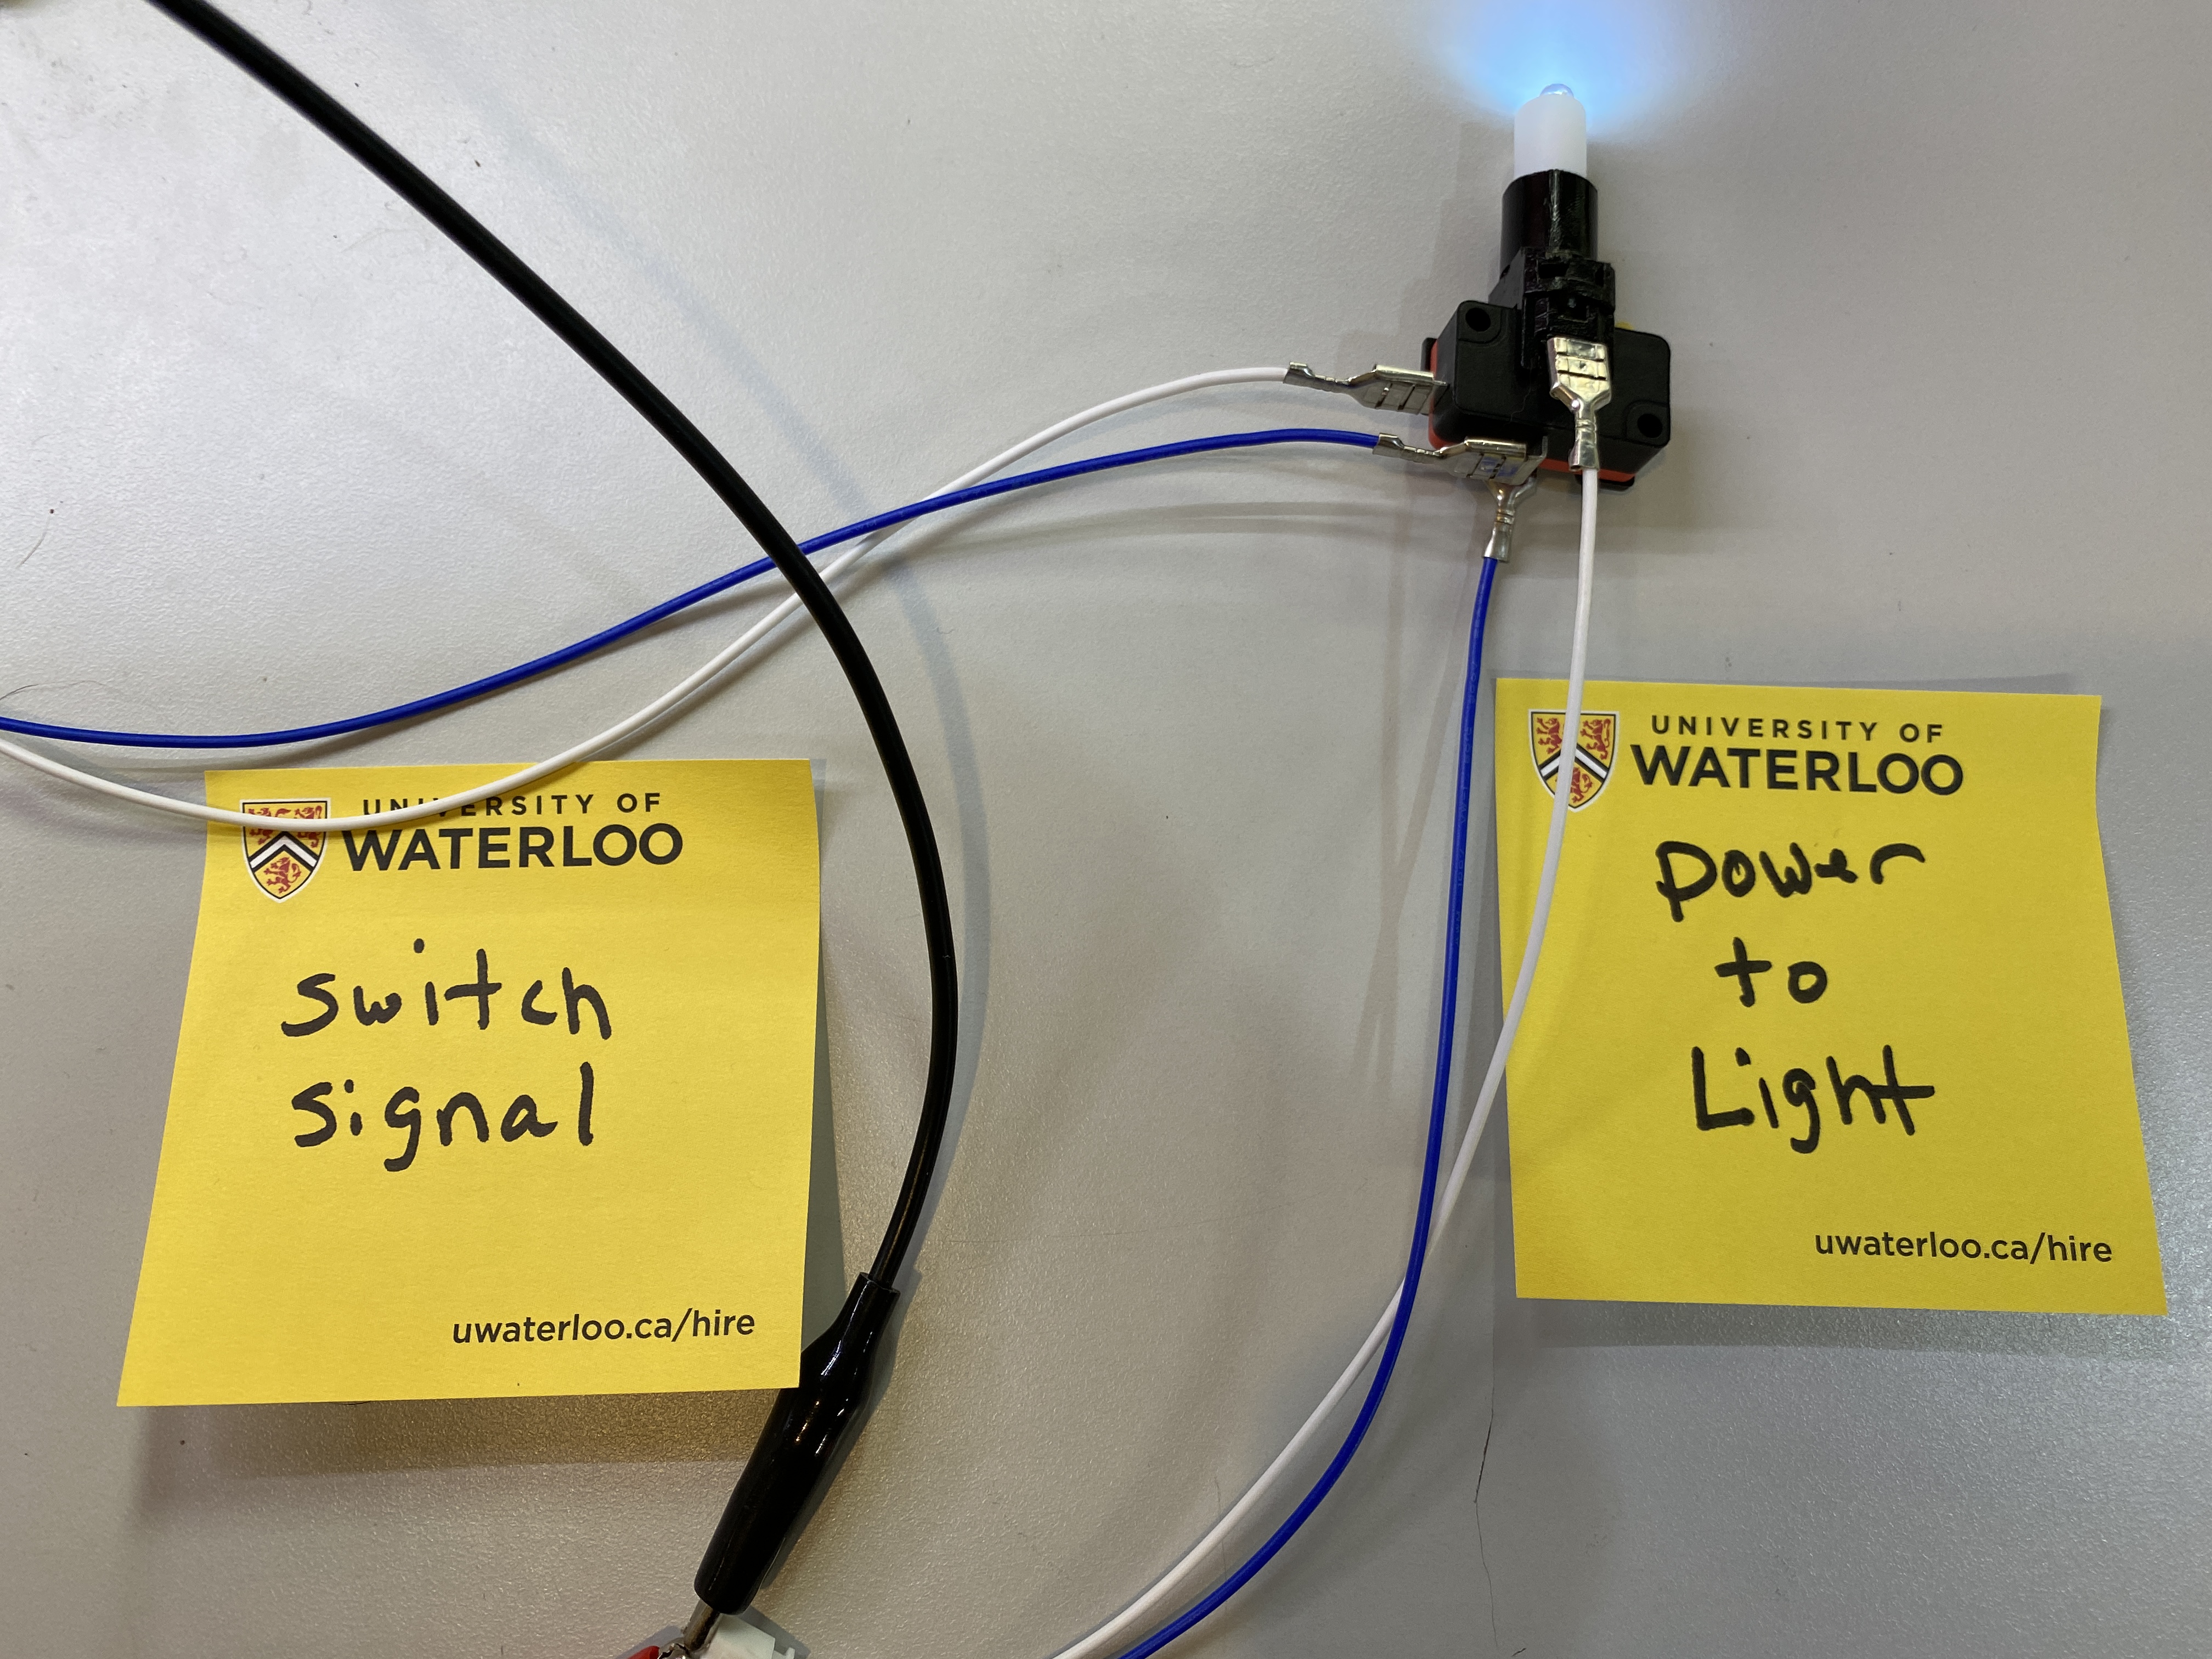 UNIVERSITY OF
WATERLOO
switch
signal
uwaterloo.ca/hire
UNIVERSITY OF
WATERLOO
power
to
Light
uwaterloo.ca/hire